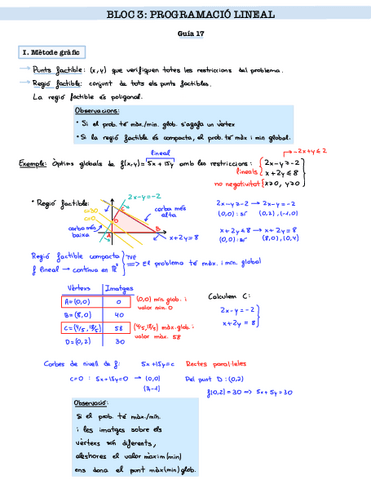 BLOC 3: PROGRAMACIÓ LINEAL
Guia 17
I. Mètode gràfic
→ Punts factible: (x,y) que verifiquen totes les restriccions del problema.
→ Regió factible: conjunt de tots els punts factibles.
La regió factible és poligonal.
Observacions:
· Si el prob. té màx./min. glob. s'agafa un vèrtex
· Si la regió factible és compacta, el prob. té màx i min global.
lineal
→ -2x+y≤2
Exemple: Òptims globals de f(x,y)=5x+15y amb les restriccions:
lineals
no negativitat
2x-y≥-2
x+2y≤8
x≥0, y≥0
· Regió factible:
2x-y=-2
corba més alta
corba més baixa
x+2y=8
2x-y≥-2 → 2x-y=-2
(0,0): sí (0,2), (-1,0)
x+2y≤8 → x+2y=8
(0,0): sí (8,0), (0,4)
Regió factible compacta
f lineal → contínua en ℝ²
⇒ El problema té màx. i min. global
Vèrtexs Imatges
A=(0,0) 0
B=(8,0) 40
C=(4/5,18/5) 58
D=(0,2) 30
(0,0) mín glob. i valor mín. 0
(4/5,18/5) màx. glob. i valor màx. 58
Calculem C:
2x-y=-2
x+2y=8
Corbes de nivell de f: 5x+15y=c Rectes paral·leles
c=0 : 5x+15y=0 → (0,0)
(3,-1)
Del punt D: (0,2)
f(0,2)=30 ⇒ 5x+15y=30
Observació:
Si el prob. té màx./mín.
i les imatges sobre els
vèrtexs són diferents,
aleshores el valor màxim (mín)
ens dona el punt màx(mín) glob.